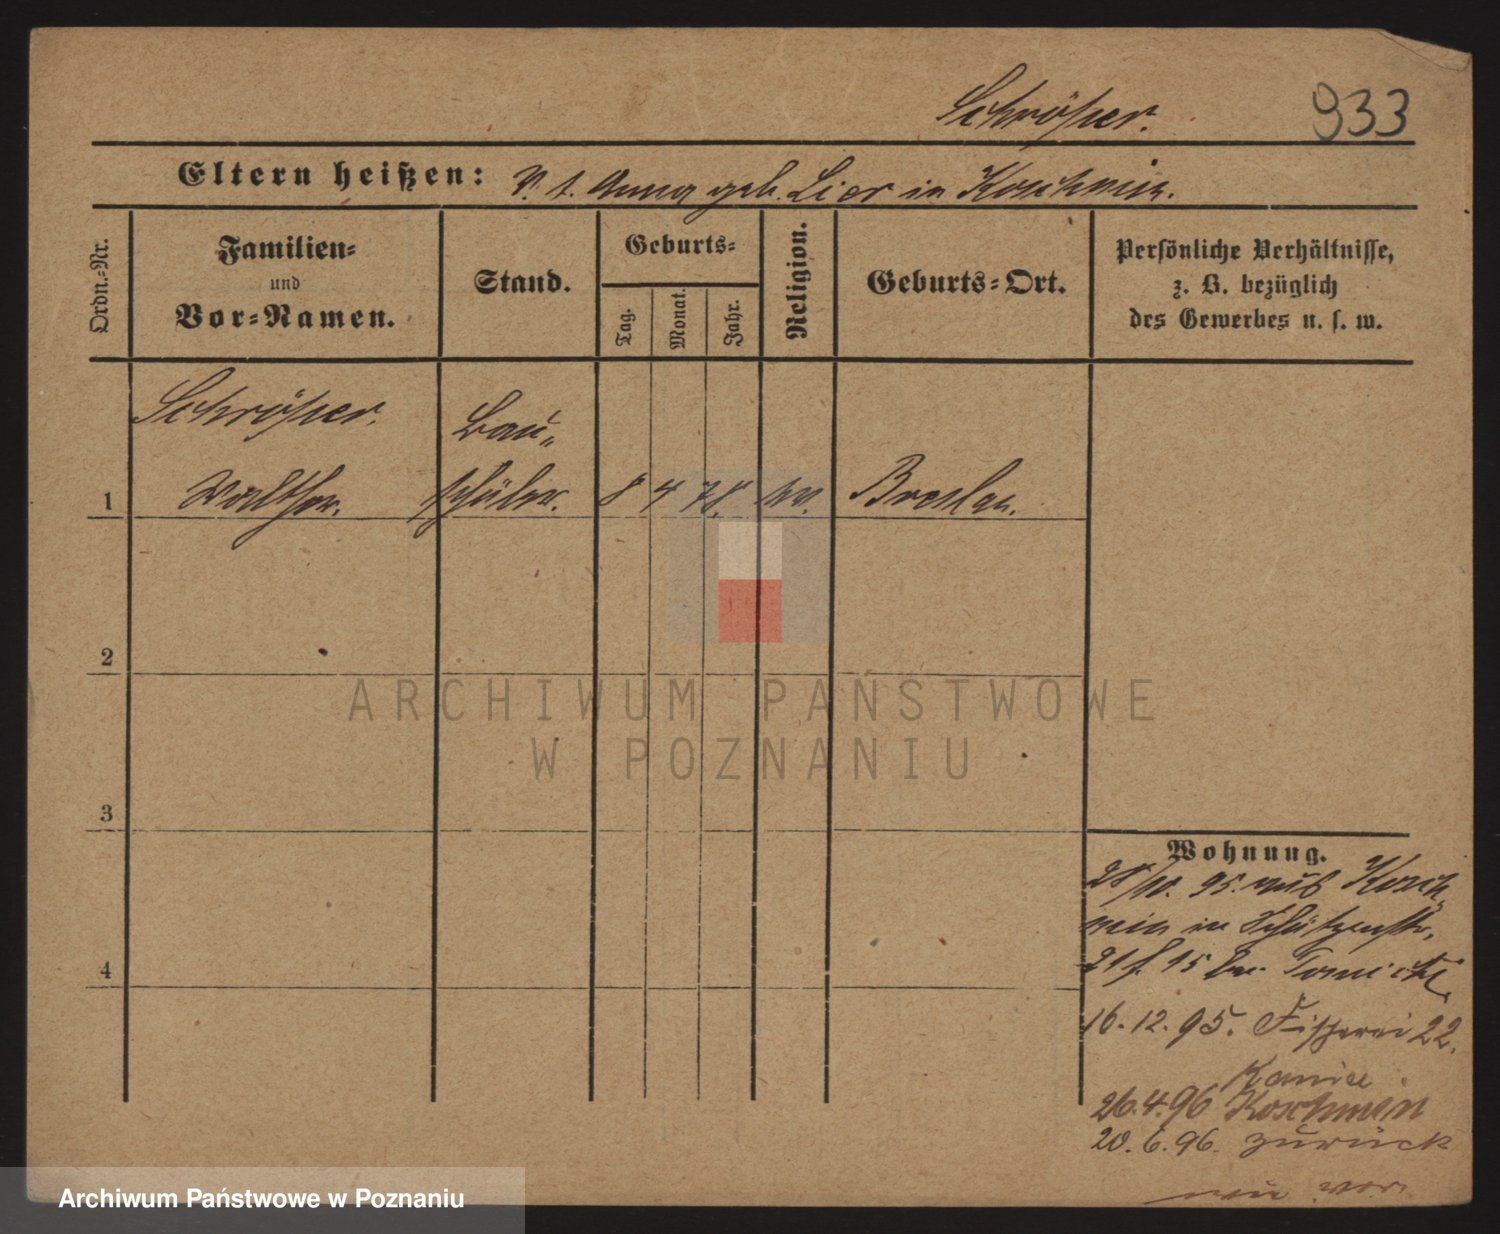 Schrößer.
933
Eltern heißen: V. t. Anna geb. Lier in Koschmin.
Ordn.-Nr.
Familien-
und
Vor-Namen.
Stand.
Geburts-
Tag.
Monat.
Jahr.
Religion.
Geburts-Ort.
Persönliche Verhältnisse,
z. B. bezüglich
des Gewerbes u. s. w.
Schrößer.
Bau-
1 Walther. schüler. 8 4 78. Breslau.
2
3
4
Wohnung.
28/10. 95. aus Kosch-
min in Schützenstr.
21 15 Tomicki
16. 12. 95. Fischerei 22.
26.4.96 Koschmin
20. 6. 96. zurück
wie vor
ARCHIWUM PAŃSTWOWE
W POZNANIU
Archiwum Państwowe w Poznaniu